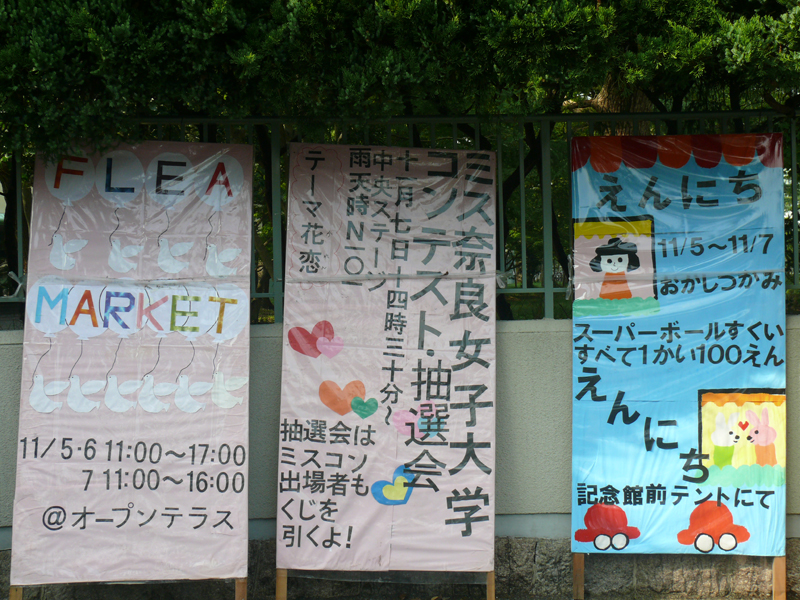 FLEA
MARKET
11/5・6 11:00～17:00
7 11:00～16:00
@オープンテラス
ミス奈良女子大学
コンテスト・抽選会
十一月七日十四時三十分～
中央ステージ
雨天時N101
テーマ花恋
抽選会は
ミスコン
出場者も
くじを
引くよ！
えんにち
11/5～11/7
おかしつかみ
スーパーボールすくい
すべて1かい100えん
えんにち
記念館前テントにて